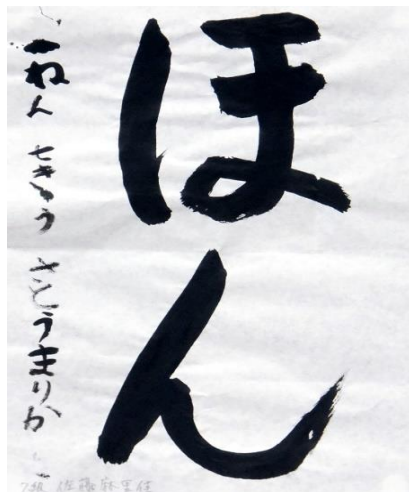 ほん
一ねん 七きゅう さとうまりか
7級 佐藤麻里佳